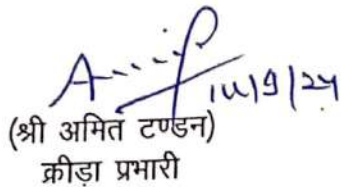 14/9/24
(श्री अमित टण्डन)
क्रीड़ा प्रभारी